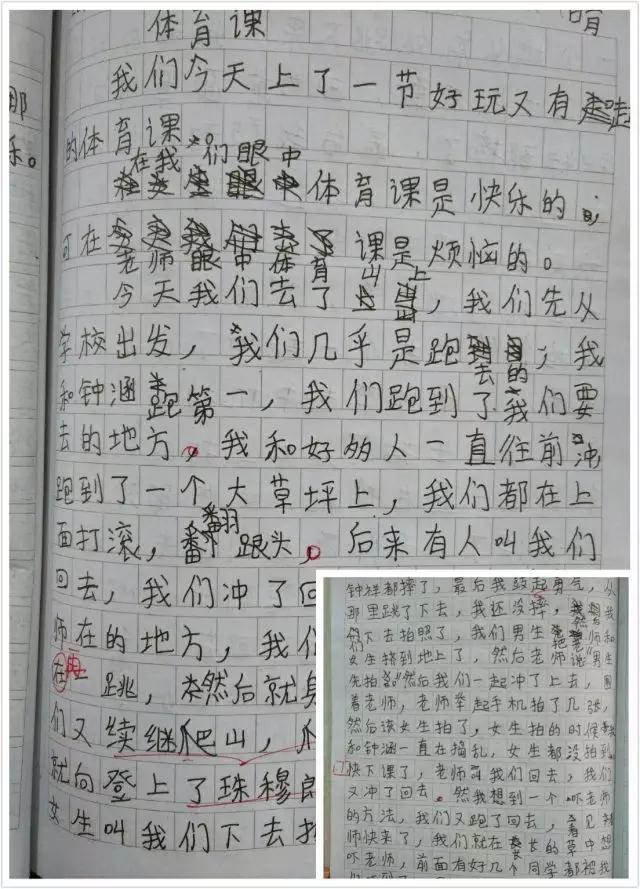 体育课
我们今天上了一节好玩又有
的体育课。
在我们眼中
体育课是快乐的。
可在课是烦恼的。
老师眼中体育
山上
今天我们去了，我们先从
学校出发，我们几乎是跑去的，我
和钟涵跑第一，我们跑到了我们要
去的地方，我和好多人一直往前冲
跑到了一个大草坪上，我们都在上
面打滚，翻跟头，后来有人叫我们
回去，我们冲了回
师在的地方，我们
在上跳，然后就
们又续继爬山，
就向登上了珠穆郎
女生叫我们下去拍
钟祥都摔了，最后我鼓起勇气，从
那里跳了下去，我还没摔，
们下去拍照了，我们男生老师和
女生挤到地上了，然后老师说男生
先拍。然后我们一起冲了上去，围
着老师，老师举起手机拍了几张，
然后该女生拍了，女生拍的时候我
和钟涵一直在捣乱，女生都没拍到
快下课了，老师叫我们回去，我们
又冲了回去。然我想到一个吓老师
的方法，我们又跑了回去，看见老
师快来了，我们就在长的草中想
吓老师，前面有好几个同学都被我